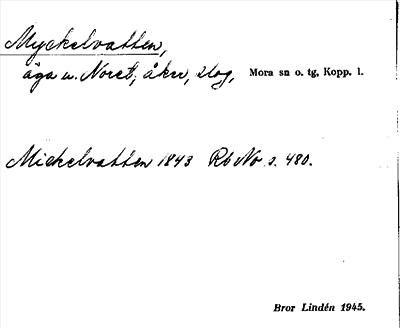 Myckelvatten,
äga u. Noret; åker, slog, Mora sn o. tg, Kopp. l.
Mickelvatten 1843 Rb No s. 480.
Bror Lindén 1945.